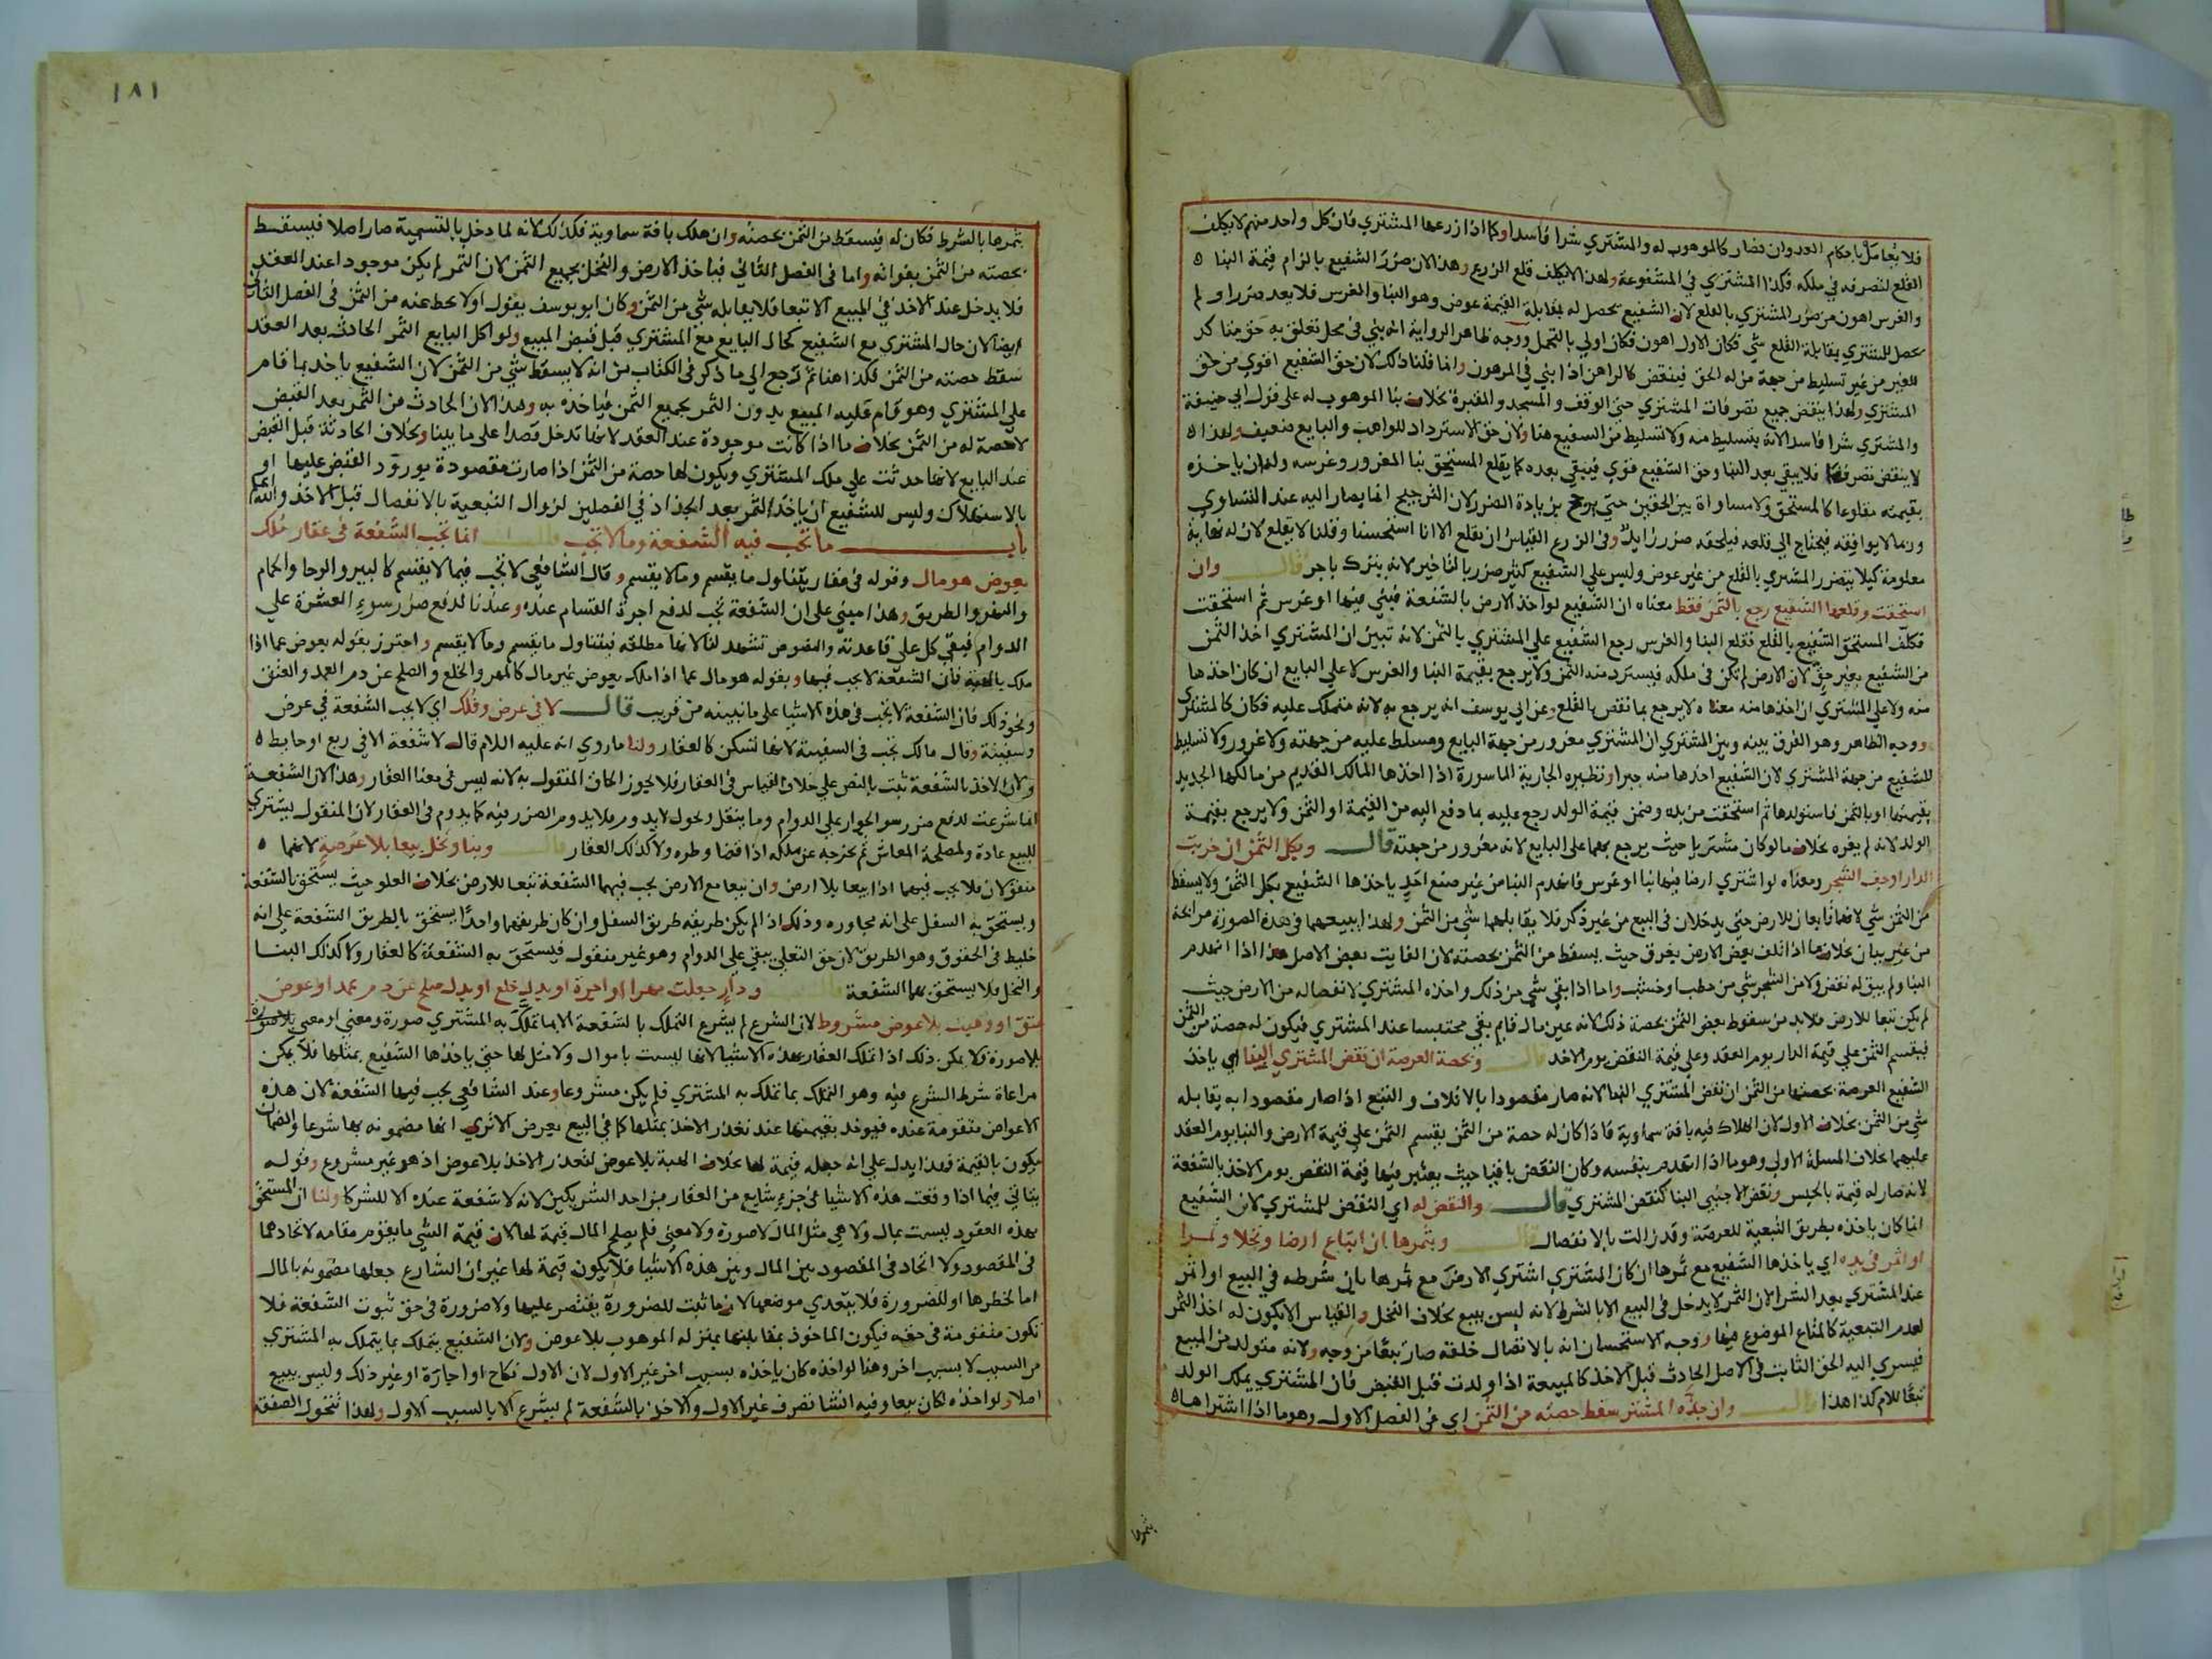 فلا يعامل باحكام العدوان فصار كالموهوب له والمشتري شرا فاسدا وكما اذا زرعها المشتري فان كل واحد منهم لا يكلف
القلع لتصرفه في ملكه فكذا المشتري في المشفوعة ولهذا لا يكلف قلع الزرع وهذا لان ضرر الشفيع بالزام قيمة البنا
والغرس اهون من ضرر المشتري بالقلع لان الشفيع يحصل له بمقابلة القيمة عوض وهو البنا والغرس فلا يعد ضررا ولم
يحصل للمشتري بمقابلة القلع شي فكان الاول اهون فكان اولي بالتحمل ووجه ظاهر الرواية انه بني في محل تعلق به حق متاكد
للغير من غير تسليط من جهة من له الحق فينقض كالراهن اذا بني في المرهون وانما قلنا ذلك لان حق الشفيع اقوي من حق
المشتري ولهذا ينقض جميع تصرفات المشتري حتي الوقف والمسجد والمقبرة بخلاف بنا الموهوب له علي قول ابي حنيفة
والمشتري شرا فاسدا لانه بتسليط منه ولا تسليط من الشفيع هنا ولان حق الاسترداد للواهب والبايع ضعيف ولهذا
لا ينقض تصرفهما فلا يبقي بعد البنا وحق الشفيع قوي فيبقي بعده كما يقلع المستحق بنا المغرور وغرسه وله ان ياخذه
بقيمته مقلوعا كالمستحق ولا مساواة بين الحقين حتي يرجح بزيادة الضرر لان الترجيح انما يصار اليه عند التساوي
وربما لا يوافقه فيحتاج الي قلعه فيلحقه ضرر زايد وفي الزرع القياس ان يقلع الا انا استحسنا وقلنا لا يقلع لان له نهاية
معلومة كيلا يتضرر المشتري بالقلع من غير عوض وليس علي الشفيع كثير ضرر بالتاخير لانه يترك باجر قال وان
استحقت وقلعها الشفيع رجع بالثمن فقط معناه ان الشفيع لو اخذ الارض بالشفعة فبني فيها او غرس ثم استحقت
فكلف المستحق الشفيع بالقلع فقلع البنا والغرس رجع الشفيع علي المشتري بالثمن لانه تبين ان المشتري اخذ الثمن
من الشفيع بغير حق لان الارض لم تكن في ملكه فيسترد منه الثمن ولا يرجع بقيمة البنا والغرس لا علي البايع ان كان اخذها
منه ولا علي المشتري ان اخذها منه معناه لا يرجع بما نقص بالقلع وعن ابي يوسف انه يرجع به لانه متملك عليه فكان كالمشتري
ووجه الظاهر وهو الفرق بينه وبين المشتري ان المشتري مغرور من جهة البايع ومسلط عليه من جهته ولا غرور ولا تسليط
للشفيع من جهة المشتري لان الشفيع اخذها منه جبرا ونظيره الجارية الماسورة اذا اخذها المالك القديم من مالكها الجديد
بقيمتها او بالثمن فاستولدها ثم استحقت من يده وضمن قيمة الولد رجع عليه بما دفع اليه من القيمة او الثمن ولا يرجع بقيمة
الولد لانه لم يغره بخلاف ما لو كان مشتريا حيث يرجع بهما علي البايع لانه مغرور من جهته قال وبكل الثمن ان خربت
الدار او جف الشجر ومعناه لو اشتري ارضا فيها بنا او غرس فانهدم البنا من غير صنع احد ياخذها الشفيع بكل الثمن ولا يسقط
من الثمن شي لانهما تابعان للارض حتي يدخلان في البيع من غير ذكر فلا يقابلهما شي من الثمن ولهذا يبيعهما في هذه الصورة مرابحة
من غير بيان بخلاف ما اذا تلف بعض الارض بغرق حيث يسقط من الثمن بحصته لان الفايت بعض الاصل هذا اذا انهدم
البنا ولم يبق له نقض ولا من الشجر شي من حطب او خشب واما اذا بقي شي من ذلك واخذه المشتري لانفصاله من الارض حيث
لم يكن تبعا للارض فلا بد من سقوط بعض الثمن بحصة ذلك لانه عين مال قايم بقي محتبسا عند المشتري فيكون له حصة من الثمن
فيقسم الثمن علي قيمة الدار يوم العقد وعلي قيمة النقض يوم الاخذ قال وبحصة العرصة ان نقض المشتري البنا اي ياخذ
الشفيع العرصة بحصتها من الثمن ان نقض المشتري البنا لانه صار مقصودا بالاتلاف والتبع اذا صار مقصودا به يقابله
شي من الثمن بخلاف الاول لان الهلاك فيه بافة سماوية فاذا كان له حصة من الثمن يقسم الثمن علي قيمة الارض والبنا يوم العقد
عليهما بخلاف المسلة الاولي وهو ما اذا انهدم بنفسه وكان النقض باقيا حيث يعتبر فيها قيمة النقض يوم الاخذ بالشفعة
لانه صار له قيمة بالحبس ونقض الاجنبي البنا كنقض المشتري قال والنقض له اي النقض للمشتري لان الشفيع
انما كان ياخذه بطريق التبعية للعرصة وقد زالت بالانفصال قال وبثمرها ان ابتاع ارضا ونخلا وثمرا
او اثمر في يده اي ياخذها الشفيع مع ثمرها ان كان المشتري اشتري الارض مع ثمرها بان شرطه في البيع او اثمر
عند المشتري بعد الشرا لان الثمر لا يدخل في البيع الا بالشرط لانه ليس ببيع بخلاف النخل والقياس الا يكون له اخذ الثمر
لعدم التبعية كالمتاع الموضوع فيها ووجه الاستحسان انه بالاتصال خلقة صار تبعا من وجه ولانه متولد من المبيع
فيسري اليه الحق الثابت في الاصل الحادث قبل الاخذ كالمبيعة اذا ولدت قبل القبض فان المشتري يملك الولد
تبعا للام كذا هذا قال وان جذه المشتر سقط حصته من الثمن اي في الفصل الاول وهو ما اذا اشتراها
بثمرها
١٨١
بثمرها بالشرط فكان له فيسقط من الثمن بحصته وان هلك بافة سماوية فكذلك لانه لما دخل بالتسمية صار اصلا فيسقط
بحصته من الثمن بفواته واما في الفصل الثاني فياخذ الارض والنخل بجميع الثمن لان الثمر لم يكن موجودا عند العقد
فلا يدخل عند الاخذ في المبيع الا تبعا فلا يقابله شي من الثمن وكان ابو يوسف يقول اولا يحط عنه من الثمن في الفصل الثاني
ايضا لان حال المشتري مع الشفيع كحال البايع مع المشتري قبل قبض المبيع ولو اكل البايع الثمر الحادث بعد العقد
سقط حصته من الثمن فكذا هنا ثم رجع الي ما ذكر في الكتاب من انه لا يسقط شي من الثمن لان الشفيع ياخذ بما قام
علي المشتري وهو قام عليه المبيع بدون الثمر بجميع الثمن فياخذه به وهذا لان الحادث من الثمر بعد القبض
لا حصة له من الثمن بخلاف ما اذا كانت موجودة عند العقد لانها تدخل قصدا علي ما بينا وبخلاف الحادثة قبل القبض
عند البايع لانها حدثت علي ملك المشتري ويكون لها حصة من الثمن اذا صارت مقصودة بورود القبض عليها او
بالاستهلاك وليس للشفيع ان ياخذ الثمر بعد الجذاذ في الفصلين لزوال التبعية بالانفصال قبل الاخذ والله اعلم
باب ما تجب فيه الشفعة وما لا تجب قال انما تجب الشفعة في عقار ملك
بعوض هو مال وقوله في عقار يتناول ما يقسم وما لا يقسم وقال الشافعي لا تجب فيما لا يقسم كالبير والرحا والحمام
والنهر والطريق وهذا مبني علي ان الشفعة تجب لدفع اجرة القسام عنده وعندنا لدفع ضرر سوء العشرة علي
الدوام فبقي كل علي قاعدته والنصوص تشهد لنا لانها مطلقة فيتناول ما يقسم وما لا يقسم واحترز بقوله بعوض عما اذا
ملك بالهبة فان الشفعة لا يجب فيها وبقوله هو مال عما اذا ملك بعوض غير مال كالمهر والخلع والصلح عن دم العمد والعتق
ونحو ذلك فان الشفعة لا تجب في هذه الاشيا علي ما نبينه من قريب قال لا في عرض وفلك اي لا يجب الشفعة في عرض
وسفينة وقال مالك تجب في السفينة لانها تسكن كالعقار ولنا ما روي انه عليه اللام قال لا شفعة الا في ربع او حايط
ولان الاخذ بالشفعة ثبت بالنص علي خلاف القياس في العقار فلا يجوز الحاق المنقول به لانه ليس في معنا العقار وهذا لان الشفعة
انما شرعت لدفع ضرر سو الجوار علي الدوام وما ينقل ويحول لا يدوم فلا يدوم الضرر فيه كما يدوم في العقار لان المنقول يشتري
للبيع عادة ولمصلحة المعاش ثم يخرجه عن ملكه اذا قضا وطره ولا كذلك العقار قال وبنا ونخل بيعا بلا عرصة لانهما
منقولان فلا يجب فيهما اذا بيعا بلا ارض وان بيعا مع الارض يجب فيهما الشفعة تبعا للارض بخلاف العلو حيث يستحق بالشفعة
ويستحق به السفل علي انه مجاوره وذلك اذا لم يكن طريقه طريق السفل وان كان طريقهما واحدا يستحق بالطريق الشفعة علي انه
خليط في الحقوق وهو الطريق لان حق التعلي يبقي علي الدوام وهو غير منقول فيستحق به الشفعة كالعقار ولا كذلك البنا
والنخل فلا يستحق بهما الشفعة قال ودار جعلت مهرا او اجرة او بدل خلع او بدل صلح عن دم عمد او عوض
عتق او وهبت بلا عوض مشروط لان الشرع لم يشرع التملك بالشفعة الا بما تملك به المشتري صورة ومعني او معني بلا صورة
بلا صورة ولا يمكن ذلك اذا تملك العقار بهذه الاشيا لانها ليست باموال ولا مثل لها حتي ياخذها الشفيع بمثلها فلا يمكن
مراعاة شرط الشرع فيه وهو التملك بما تملك به المشتري فلم يكن مشروعا وعند الشافعي يجب فيها الشفعة لان هذه
الاعواض متقومة عنده فيوخذ بقيمتها عند تعذر الاخذ بمثلها كما في البيع بعرض الا تري انها مضمونه بها شرعا والضمان
يكون بالقيمة فهذا يدل علي انه جعله قيمة لها بخلاف الهبة بلا عوض لتعذر الاخذ بلا عوض اذ هو غير مشروع وقوله
يتاتي فيما اذا وقعت هذه الاشيا في جزء شايع من العقار من احد الشريكين لانه لا شفعة عنده الا للشركا ولنا ان المستحق
بهذه العقود ليست بمال ولا هي مثل المال لا صورة ولا معني فلم يصلح المال قيمة لها لان قيمة الشي ما يقوم مقامه لاتحادهما
في المقصود ولا اتحاد في المقصود بين المال وبين هذه الاشيا فلا يكون قيمة لها غير ان الشارع جعلها مضمونه بالمال
اما لخطرها او للضرورة فلا يتعدي موضعها لان ما ثبت للضرورة يقتصر عليها ولا ضرورة في حق ثبوت الشفعة فلا
تكون متقومة في حقه فيكون الماخوذ بمقابلتها بمنزله الموهوب بلا عوض ولان الشفيع يتملك بما يتملك به المشتري
من السبب لا بسبب اخر وهنا لو اخذه كان ياخذه بسبب اخر غير الاول لان الاول نكاح او اجارة او غير ذلك وليس ببيع
اصلا ولو اخذه لكان بيعا وفيه انشا تصرف غير الاول والاخذ بالشفعة لم يشرع الا بالسبب الاول ولهذا تتحول الصفقة